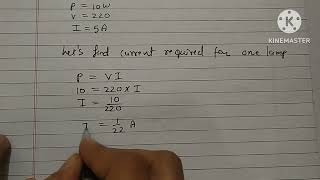 P = 10W
V = 220
I = 5A
KINEMASTER
Let's find current required for one lamp
P = VI
10 = 220 × I
I = 10/220
I = 1/22 A